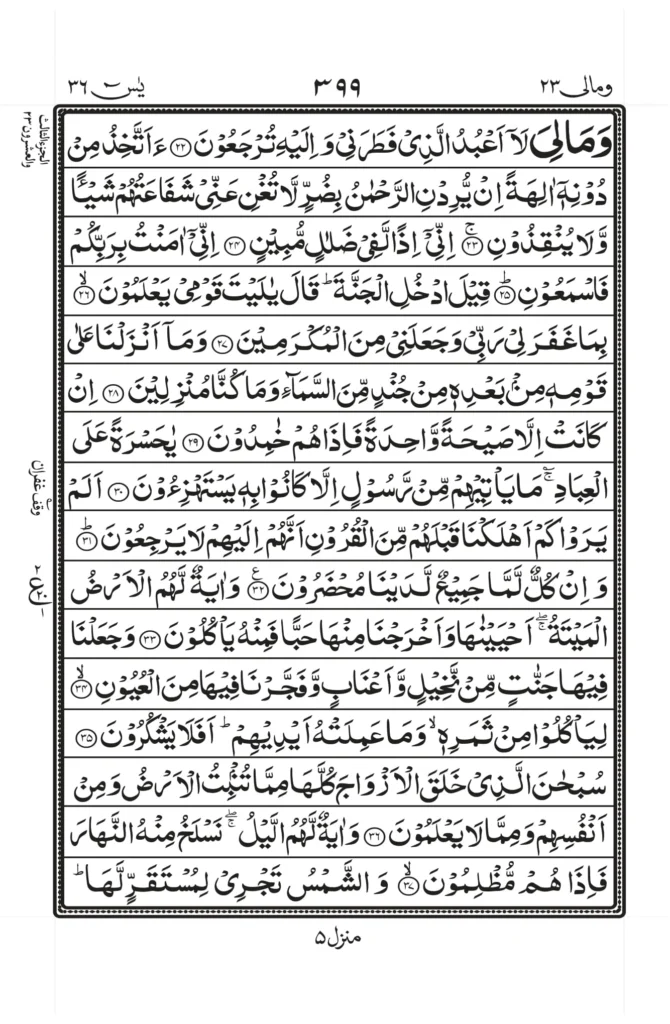 ومالی ۲۳
۳۹۹
یٰس ۳۶
وَمَا لِیَ لَاۤ اَعْبُدُ الَّذِیْ فَطَرَنِیْ وَ اِلَیْهِ تُرْجَعُوْنَ ۲۲ ءَاَتَّخِذُ مِنْ
دُوْنِهٖۤ اٰلِهَةً اِنْ یُّرِدْنِ الرَّحْمٰنُ بِضُرٍّ لَّا تُغْنِ عَنِّیْ شَفَاعَتُهُمْ شَیْـًٔا
وَّلَا یُنْقِذُوْنِ ۚ۲۳ اِنِّیْۤ اِذًا لَّفِیْ ضَلٰلٍ مُّبِیْنٍ ۲۴ اِنِّیْۤ اٰمَنْتُ بِرَبِّكُمْ
فَاسْمَعُوْنِ ؕ۲۵ قِیْلَ ادْخُلِ الْجَنَّةَ ؕ قَالَ یٰلَیْتَ قَوْمِیْ یَعْلَمُوْنَ ۙ۲۶
بِمَا غَفَرَ لِیْ رَبِّیْ وَجَعَلَنِیْ مِنَ الْمُكْرَمِیْنَ ۲۷ وَمَاۤ اَنْزَلْنَا عَلٰی
قَوْمِهٖ مِنْۢ بَعْدِهٖ مِنْ جُنْدٍ مِّنَ السَّمَآءِ وَمَا كُنَّا مُنْزِلِیْنَ ۲۸ اِنْ
كَانَتْ اِلَّا صَیْحَةً وَّاحِدَةً فَاِذَا هُمْ خٰمِدُوْنَ ۲۹ یٰحَسْرَةً عَلَی
الْعِبَادِ ۚؔ مَا یَاْتِیْهِمْ مِّنْ رَّسُوْلٍ اِلَّا كَانُوْا بِهٖ یَسْتَهْزِءُوْنَ ۳۰ اَلَمْ
یَرَوْا كَمْ اَهْلَكْنَا قَبْلَهُمْ مِّنَ الْقُرُوْنِ اَنَّهُمْ اِلَیْهِمْ لَا یَرْجِعُوْنَ ؕ۳۱
وَ اِنْ كُلٌّ لَّمَّا جَمِیْعٌ لَّدَیْنَا مُحْضَرُوْنَ ۳۲ۧ وَاٰیَةٌ لَّهُمُ الْاَرْضُ
الْمَیْتَةُ ۚۖ اَحْیَیْنٰهَا وَاَخْرَجْنَا مِنْهَا حَبًّا فَمِنْهُ یَاْكُلُوْنَ ۳۳ وَجَعَلْنَا
فِیْهَا جَنّٰتٍ مِّنْ نَّخِیْلٍ وَّاَعْنَابٍ وَّفَجَّرْنَا فِیْهَا مِنَ الْعُیُوْنِ ۙ۳۴
لِیَاْكُلُوْا مِنْ ثَمَرِهٖ ۙ وَمَا عَمِلَتْهُ اَیْدِیْهِمْ ؕ اَفَلَا یَشْكُرُوْنَ ۳۵
سُبْحٰنَ الَّذِیْ خَلَقَ الْاَزْوَاجَ كُلَّهَا مِمَّا تُنْۢبِتُ الْاَرْضُ وَمِنْ
اَنْفُسِهِمْ وَمِمَّا لَا یَعْلَمُوْنَ ۳۶ وَاٰیَةٌ لَّهُمُ الَّیْلُ ۚۖ نَسْلَخُ مِنْهُ النَّهَارَ
فَاِذَا هُمْ مُّظْلِمُوْنَ ۙ۳۷ وَ الشَّمْسُ تَجْرِیْ لِمُسْتَقَرٍّ لَّهَا ؕ
الجزء الثالث
والعشرون ۲۳
وقف غفران
منزل ۵